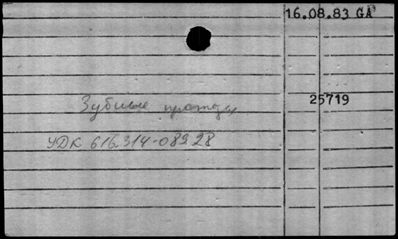 16.08.83 GA
25719
Зубные протезы
УДК 616.314-089.28